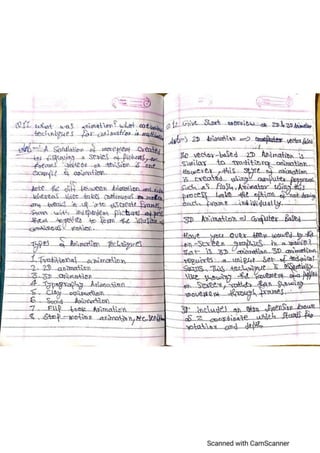 Q.11. What was animation? What are
techniques for animation in multimedia
Ans- A Simulation of movement created
by displaying a series of pictures, or
frames
example of animation.
Note the diff between Animation and video
whereas video takes continuous
any break it up into discrete frames,
starts with independent pictures and put
them together to form the illusion of
continuous motion.
Types of Animation Techniques
1. Traditional animation
2. 2D animation
3. 3D animation
4. Typography Animation
5. Clay animation
6. Sand Animation
7. Flip book Animation
8. Stop-motion animation, etc.
Q.12. Give Short overview on 2D & 3D Animation
Ans- 2D Animation => vector-based
The vector-based 2D Animation is
similar to traditional animation
However, this style of animation
is created using computer apparent
such as Flash, Animator using this
process has the option of not doing
each frame individually.
3D Animation => Computer Based
Have you ever been wowed by the
on-screen graphics in a movie?
that is 3D animation. 3D animation
requires a unique set of technical
skills. This technique is
like moving the movement of a puppet
on screen, rather than drawing
movement through frames.
It includes an extra dimension
of Z coordinate which stands for
rotation and depth
Scanned with CamScanner